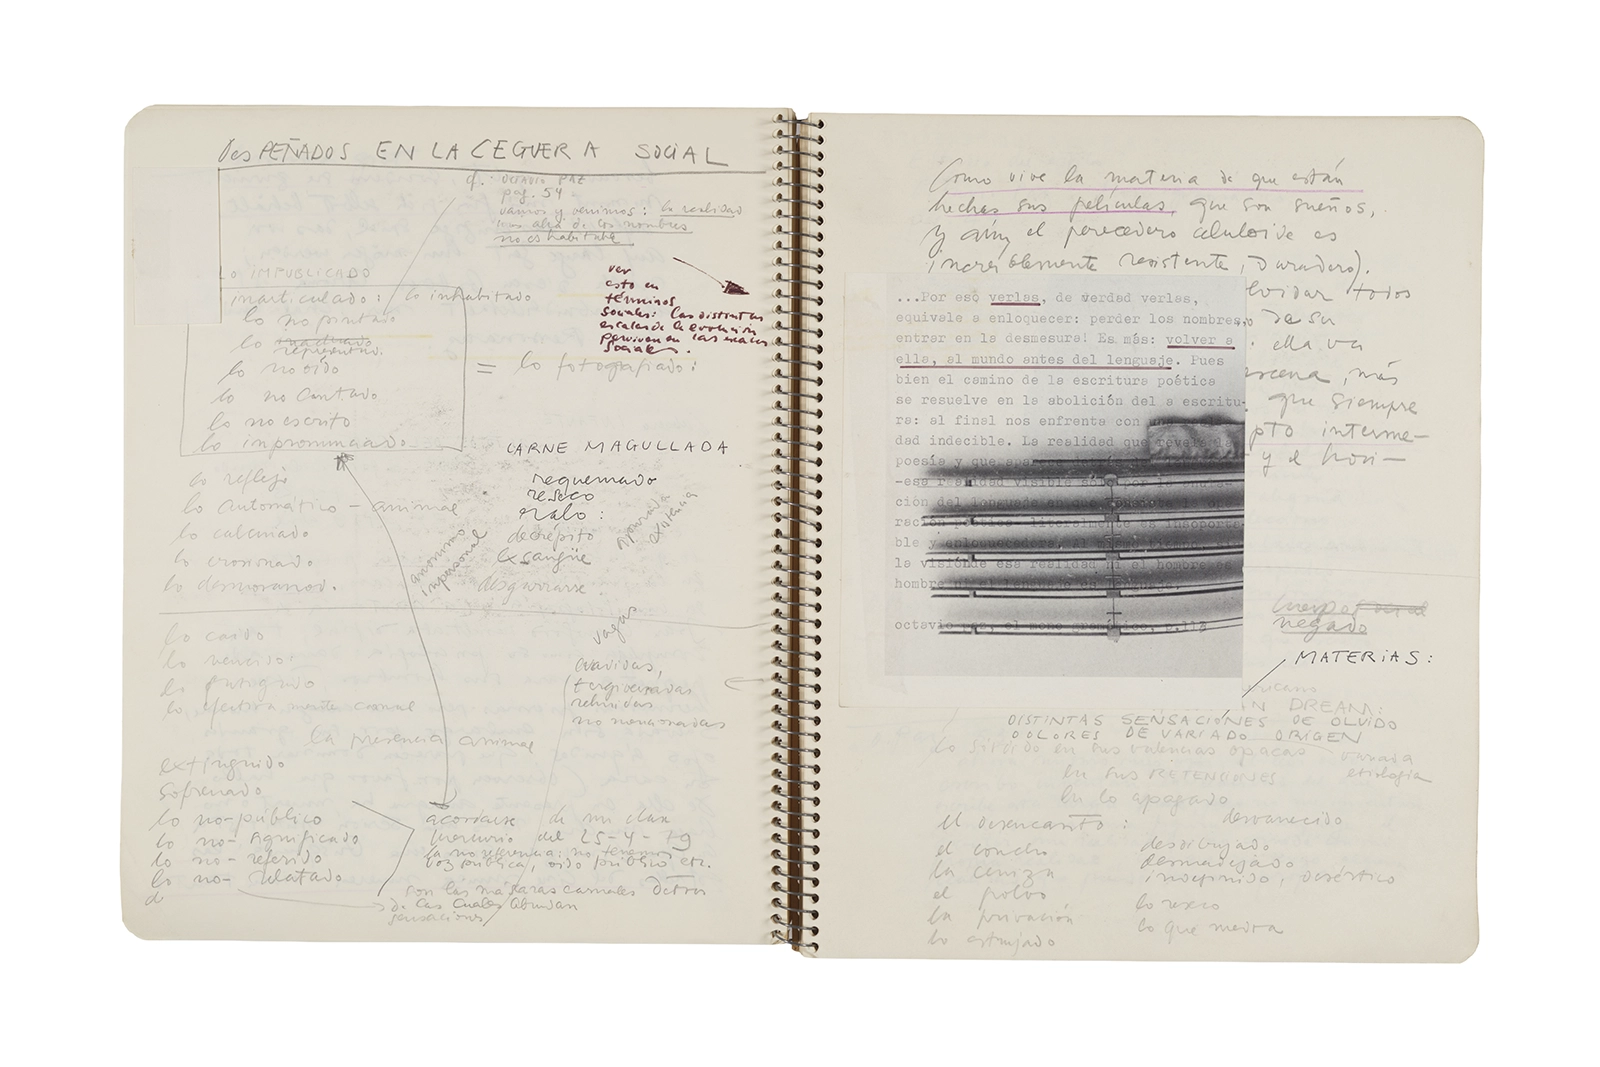 DesPEÑADOS EN LA CEGUERA SOCIAL
cf. OCTAVIO PAZ
pag. 54
vamos y venimos: la realidad
más allá de los nombres
no es habitable
Lo IMPUBLICADO
inarticulado: lo inhabitado
lo no pintado
lo
representado.
lo no oído
lo no cantado
lo no escrito
lo inpronunciado
= lo fotografiado:
ver
esto en
términos
sociales: las distintas
escalas de la evolución
perviven en las escalas
sociales.
lo reflejo
lo automático - animal
lo calcinado
lo erosionado
lo desmoronado.
anonimo
inpersonal
CARNE MAGULLADA
requemado
reseco
ralo:
decrépito
exsangüe
desgarrarse
lo caído
lo vencido:
lo fatigado
lo efectivamente carnal
la presencia animal
extinguido
sofrenado
lo no-público
lo no-significado
lo no-referido
lo no-relatado
vagas
evadidas,
tergiversadas
rehuidas
no mencionadas
acordarse de mi clan
Mercurio del 25-4-79
la no referencia: no tenemos
voz pública, oído público etc.
con las máscaras carnales detrás
de las cuales abundan
sensaciones
Como vive la materia de que están
hechas sus películas, que son sueños,
y aún el perecedero celuloide es
increíblemente resistente, duradero).
lvidar todos
de su
ella va
más
que siempre
pto interme-
y el hori-
...Por eso verlas, de verdad verlas,
equivale a enloquecer: perder los nombres,
entrar en la desmesura! Es más: volver a
ella, al mundo antes del lenguaje. Pues
bien el camino de la escritura poética
se resuelve en la abolición del a escritu-
ra: al final nos enfrenta con
dad indecible. La realidad que revela la
poesía y que
-esa realidad visible sólo por la
ción del lenguaje en
ración poética- literalmente es insoporta-
ble y enloquecedora. Al
la visiónde esa realidad ni el hombre es
hombre ni el lenguaje es lenguaje.
octavio paz, el mono gramático, p.113
cuerpo
negado
MATERIAS:
ricano
N DREAM:
DISTINTAS SENSACIONES DE OLVIDO
DOLORES DE VARIADO ORIGEN
lo sordido en sus valencias opacas
variada
etiologia
En sus RETENCIONES
En lo apagado
el desencanto: desvanecido
el concho desdibujado
la ceniza desmadejado
el polvo indefinido, desértico
la privación lo reseco
lo estrujado lo que medra